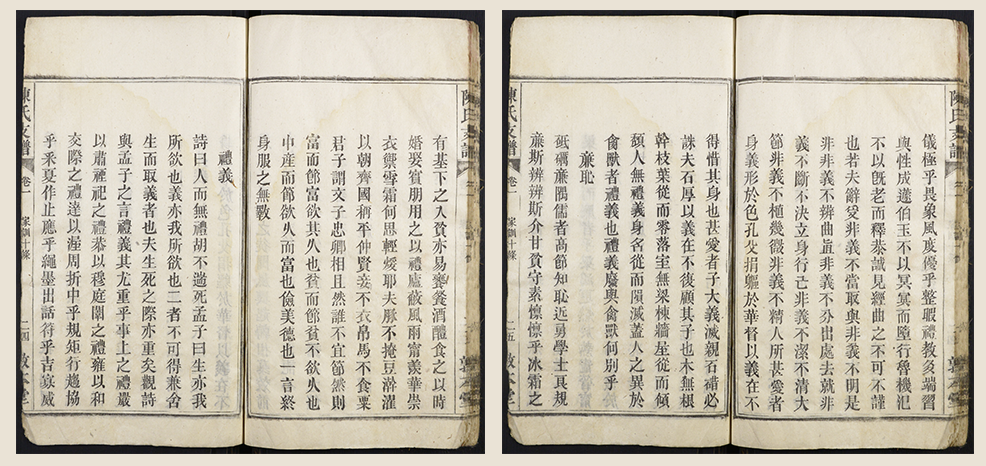 有基下之入貧亦易養餐酒醴食之之以時
婚娶賓朋用之以禮廬蔽風雨甯羨華崇
衣禦雪霜何思輕煖耶夫豚不掩豆澣濯
以朝齊國稱平仲賢妾不衣帛馬不食粟
君子謂文子忠卿相且然誰不宜節然則
富而節富欲其人也貧而節貧不欲人也
中產而節欲人而富也儉美德也一言終
身服之無斁
禮義
詩曰人而無禮胡不遄死孟子曰生亦我
所欲也義亦我所欲也二者不可得兼舍
生而取義者也夫生死之際亦重矣觀詩
與孟子之言禮義其尤重乎事上之禮嚴
以肅禋祀之禮恭以穆庭闈之禮雍以和
交際之禮達以渥周折中乎規矩行趨協
乎釆夏作止應乎繩墨出話符乎吉㐮威
陳氏支譜 卷一 家訓十條 二四 敦本堂
儀極乎畏象風度優乎整暇禮敎多端習
與性成蘧伯玉不以冥冥而墮行魯機汜
不以旣老而釋恭誡見經曲之不可不謹
也若夫辭受非義不當取與非義不明是
非非義不辨曲直非義不分出處去就非
義不斷不決立身行己非義不潔不清大
節非義不植幾微非義不精人所甚愛者
身義形於色孔父捐軀於華督以義在不
得惜其身也甚愛者子大義滅親石碏必
誅夫石厚以義在不後顧其子也木無根
幹枝葉從而零落室無梁棟牆垕從而傾
頹人無禮義身名從而隕滅蓋人之異於
禽獸者禮義也禮義廢與禽獸何別乎
廉恥
砥礪廉隅儒者高節知恥近勇學士良規
廉斯辨辨斯介甘貧守素懍懍乎冰霜之
陳氏支譜 卷一 家訓十條 二五 敦本堂